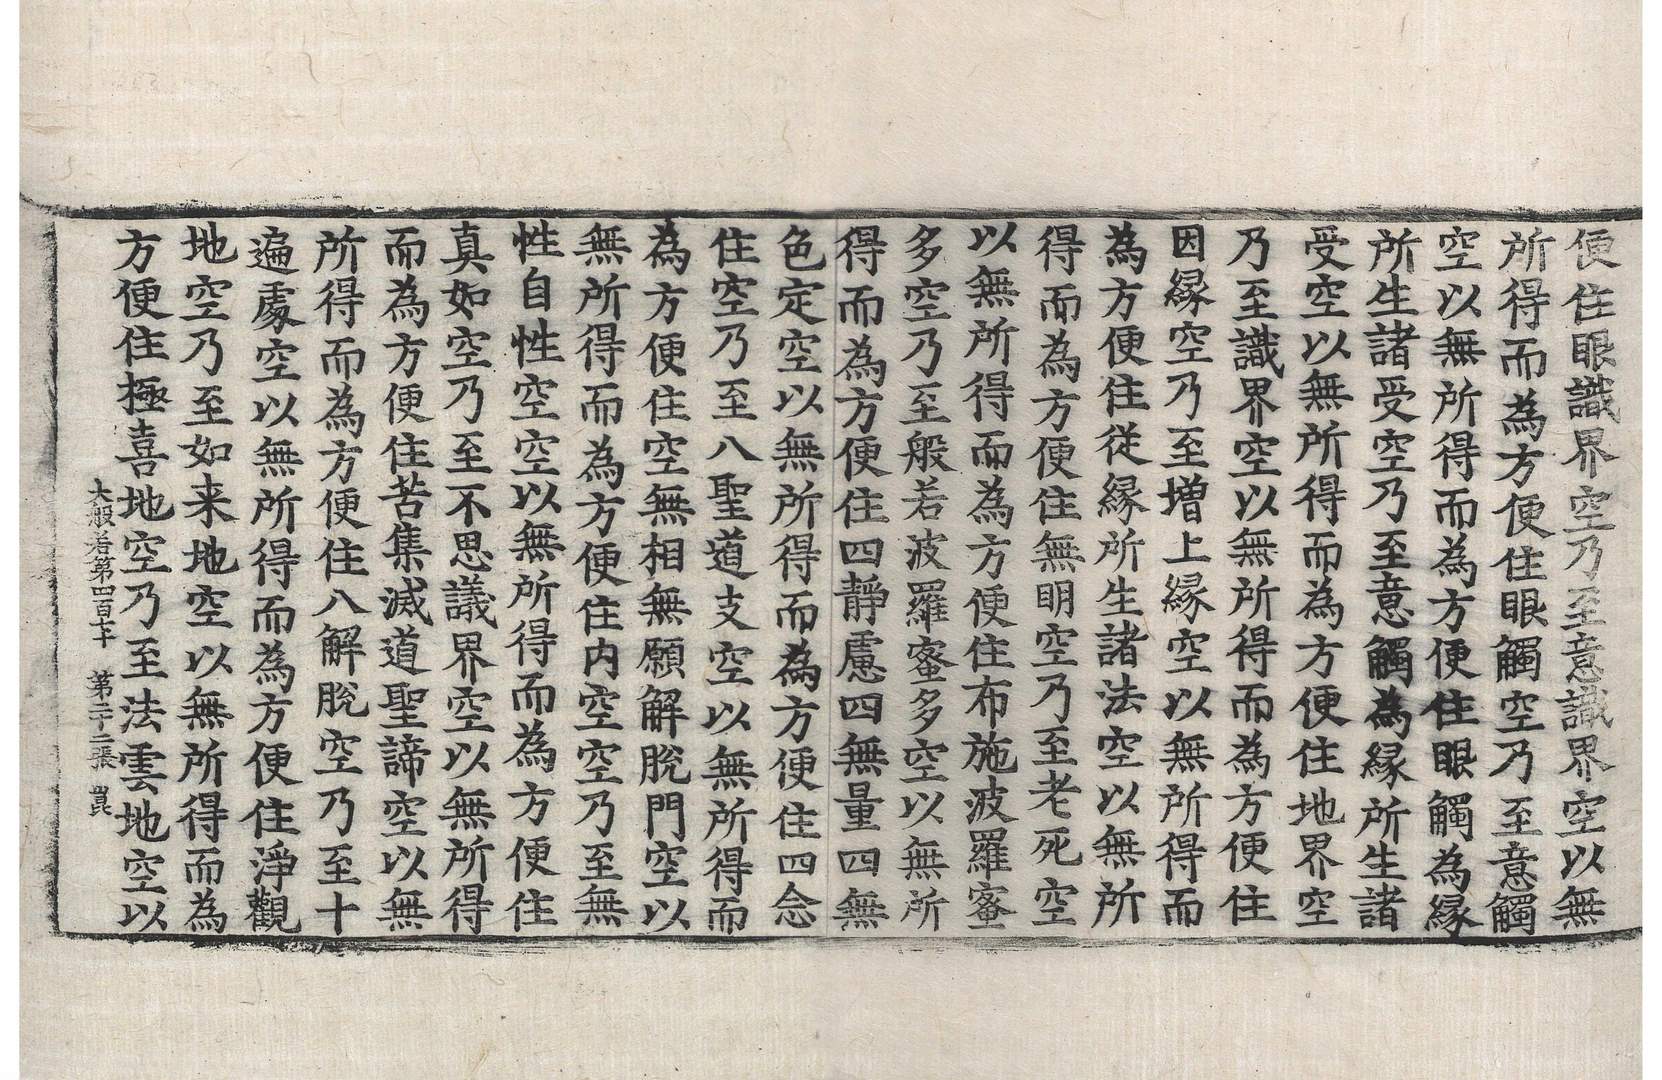 便住眼識界空乃至意識界空以無
所得而為方便住眼觸空乃至意觸
空以無所得而為方便住眼觸為縁
所生諸受空乃至意觸為縁所生諸
受空以無所得而為方便住地界空
乃至識界空以無所得而為方便住
因縁空乃至増上縁空以無所得而
為方便住從縁所生諸法空以無所
得而為方便住無明空乃至老死空
以無所得而為方便住布施波羅蜜
多空乃至般若波羅蜜多空以無所
得而為方便住四靜慮四無量四無
色定空以無所得而為方便住四念
住空乃至八聖道支空以無所得而
為方便住空無相無願解脫門空以
無所得而為方便住内空空乃至無
性自性空空以無所得而為方便住
真如空乃至不思議界空以無所得
而為方便住苦集滅道聖諦空以無
所得而為方便住八解脫空乃至十
遍處空以無所得而為方便住淨觀
地空乃至如来地空以無所得而為
方便住極喜地空乃至法雲地空以
大般若第四百七十　第二十二張　崑